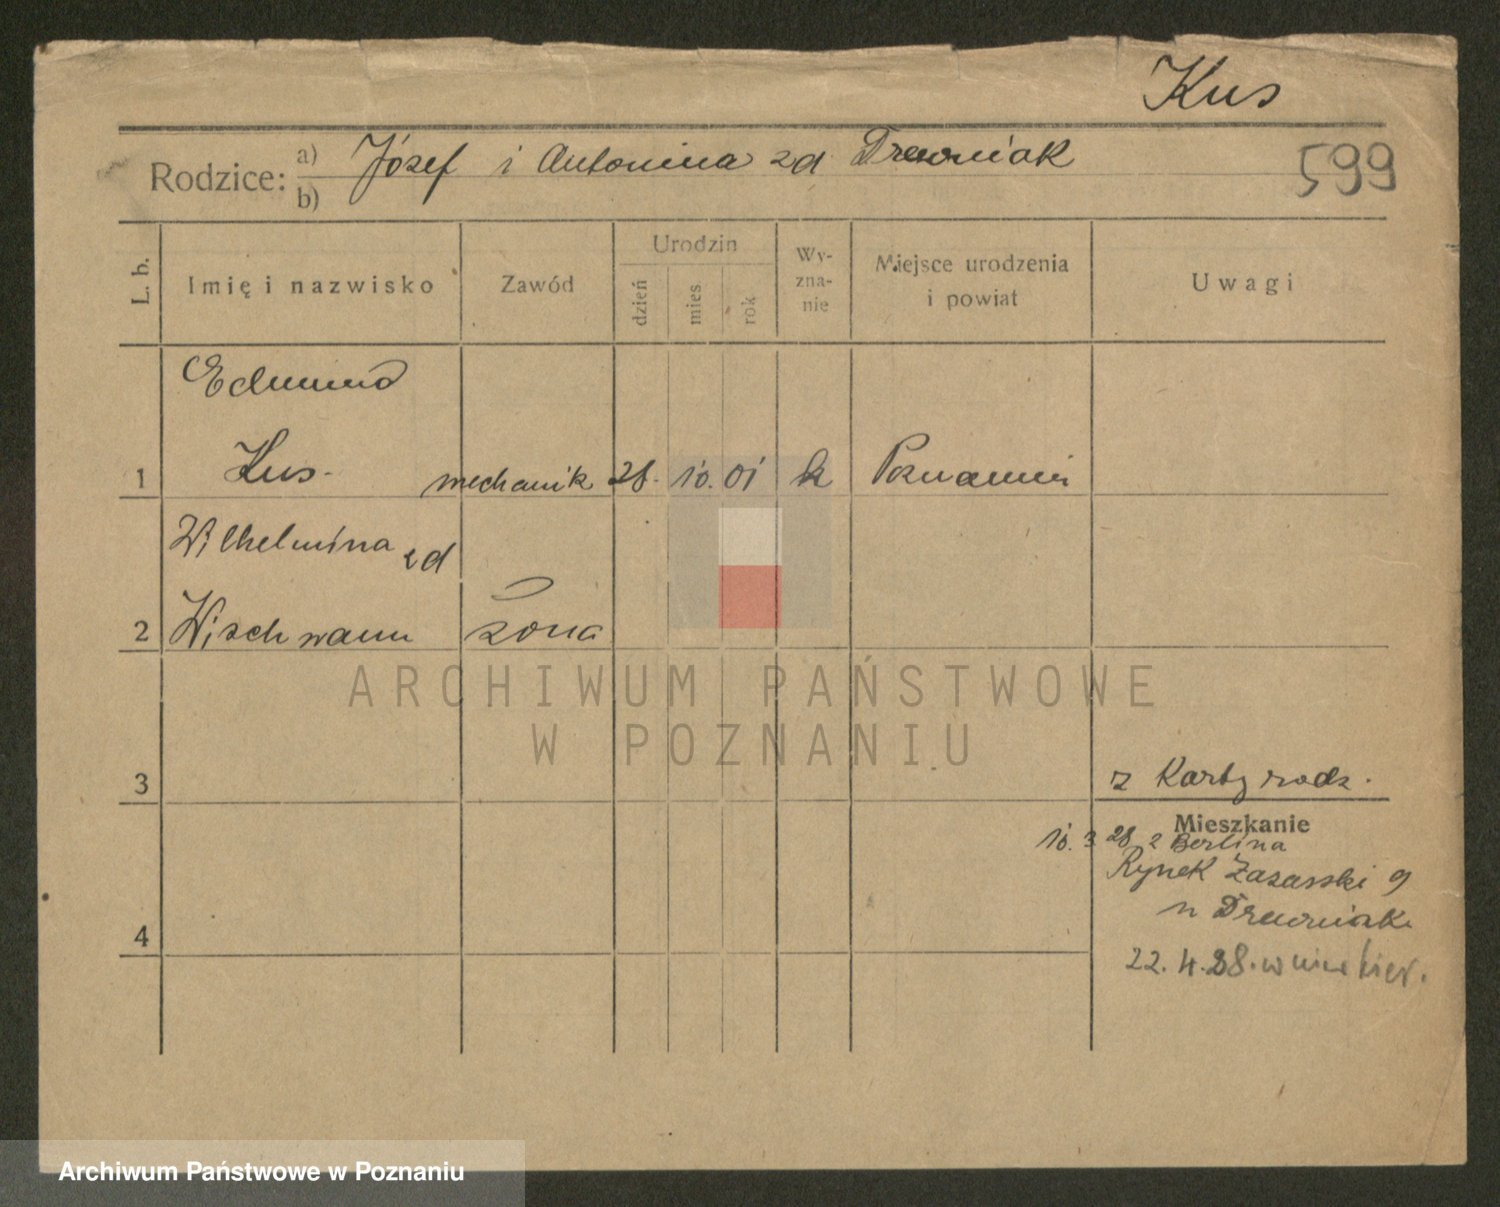 Kus
Rodzice: a) Józef i Antonina zd Drewniak
b)
599
L. b.
Imię i nazwisko
Zawód
Urodzin
dzień
mies
rok
Wy-
zna-
nie
Miejsce urodzenia
i powiat
Uwagi
Edmund
1 Kus- mechanik 28. 10. 01 k Poznaniu
Wilhelmina zd
2 Wischmann żona
ARCHIWUM PAŃSTWOWE
W POZNANIU
3
z Karty rodz.
Mieszkanie
10. 3 28 z Berlina
Rynek Łazarski 9
u Drewniak
4
22. 4. 28.
Archiwum Państwowe w Poznaniu